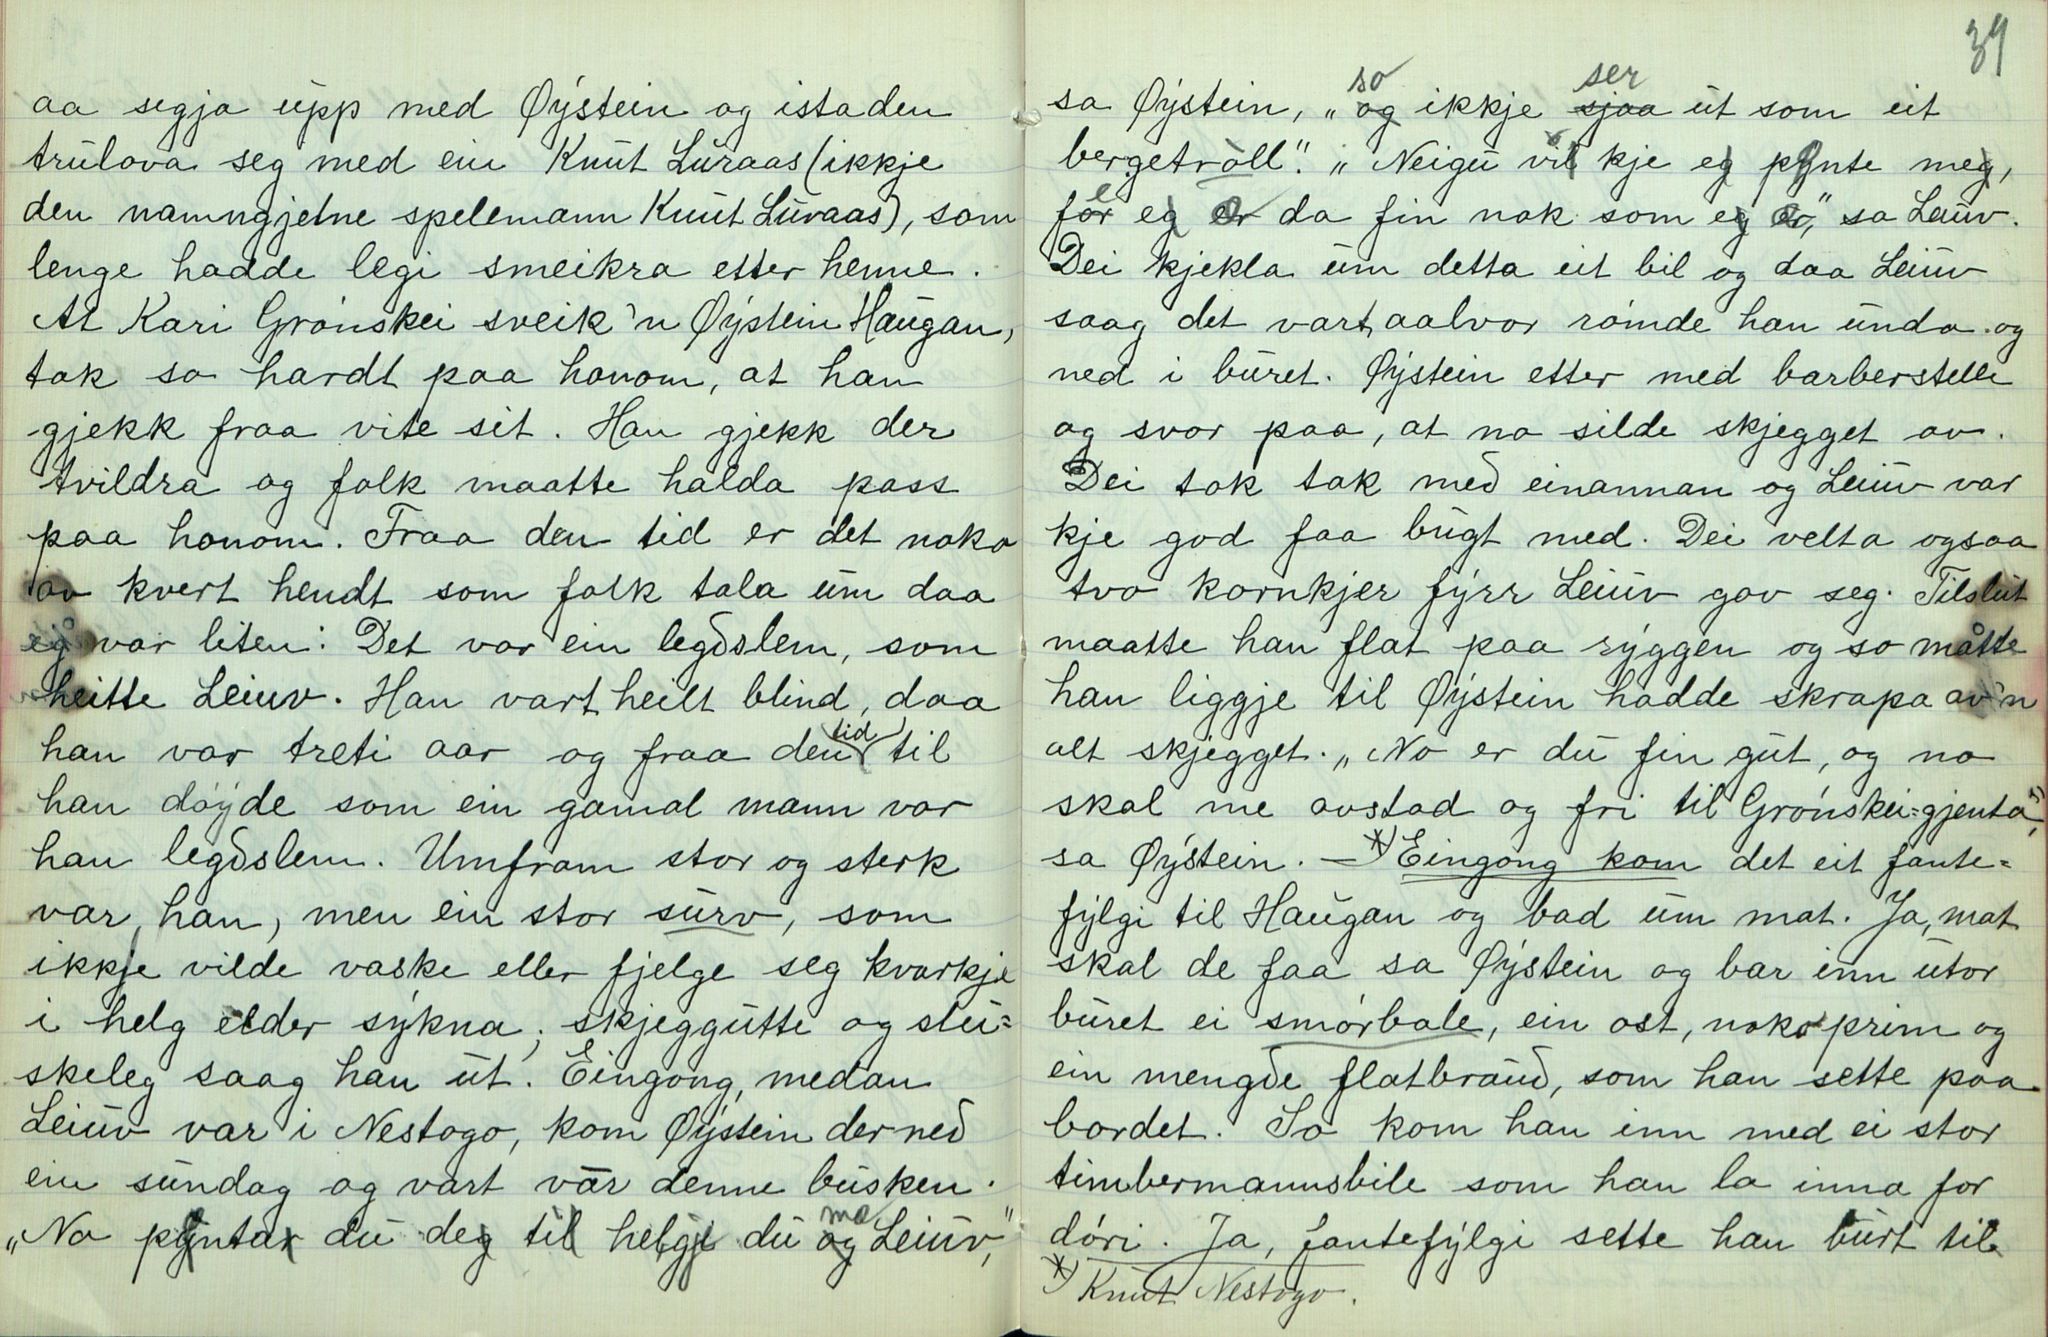 aa segja upp med Øystein og istaden
trulova seg med ein Knut Luraas (ikkje
den namngjetne spelemann Knut Luraas), som
lenge hadde legi smeikra etter henne.
At Kari Grønskei sveik'n Øystein Haugan,
tok so hardt paa honom, at han
gjekk fraa vite sit. Han gjekk der
tvildra og folk maatte halda pass
paa honom. Fraa den tid er det noko
av kvert hendt som folk tala um daa
eg var liten: Det var ein legdslem, som
heitte Leiuv. Han vart heilt blind, daa
han var treti aar og fraa den tid til
han døyde som ein gamal mann var
han legdslem. Umfram stor og sterk
var han, men ein stor surv, som
ikkje vilde vaske eller fjelge seg kvarkje
i helg elder sykna; skjeggutte og slu=
skeleg saag han ut. Eingong, medan
Leiuv var i Nestogo, kom Øystein der ned
ein sundag og vart vár denne busken.
"No pyntar du deg til helgi du mo og Leiuv,"
39
sa Øystein, "so og ikkje ser sjaa ut som eit
bergetroll". "Neigu vil kje eg pynte meg,
for eg er da fin nok som eg er," sa Leiuv.
Dei kjekla um detta eit bil og daa Leiuv
saag det vart aalvor rømde han unda og
ned i buret. Øystein etter med barberstelle
og svor paa, at no silde skjegget av.
Dei tok tak med einannan og Leiuv var
kje god faa bugt med. Dei velta ogsaa
tvo kornkjer fyrr Leiuv gav seg. Tilslut
maatte han flat paa ryggen og so måtte
han liggje til Øystein hadde skrapa av'n
alt skjegget. "No er du fin gut, og no
skal me avstad og fri til Grønskei=gjenta",
sa Øystein. – *) Eingong kom det eit fante=
fylgi til Haugan og bad um mat. Ja, mat
skal de faa sa Øystein og bar inn utor
buret ei smørbale, ein ost, noko prim og
ein mengde flatbraud, som han sette paa
bordet. So kom han inn med ei stor
timbermannsbile som han la inna for
dóri. Ja, fantefylgi sette han burt til
*) Knut Nestogo.